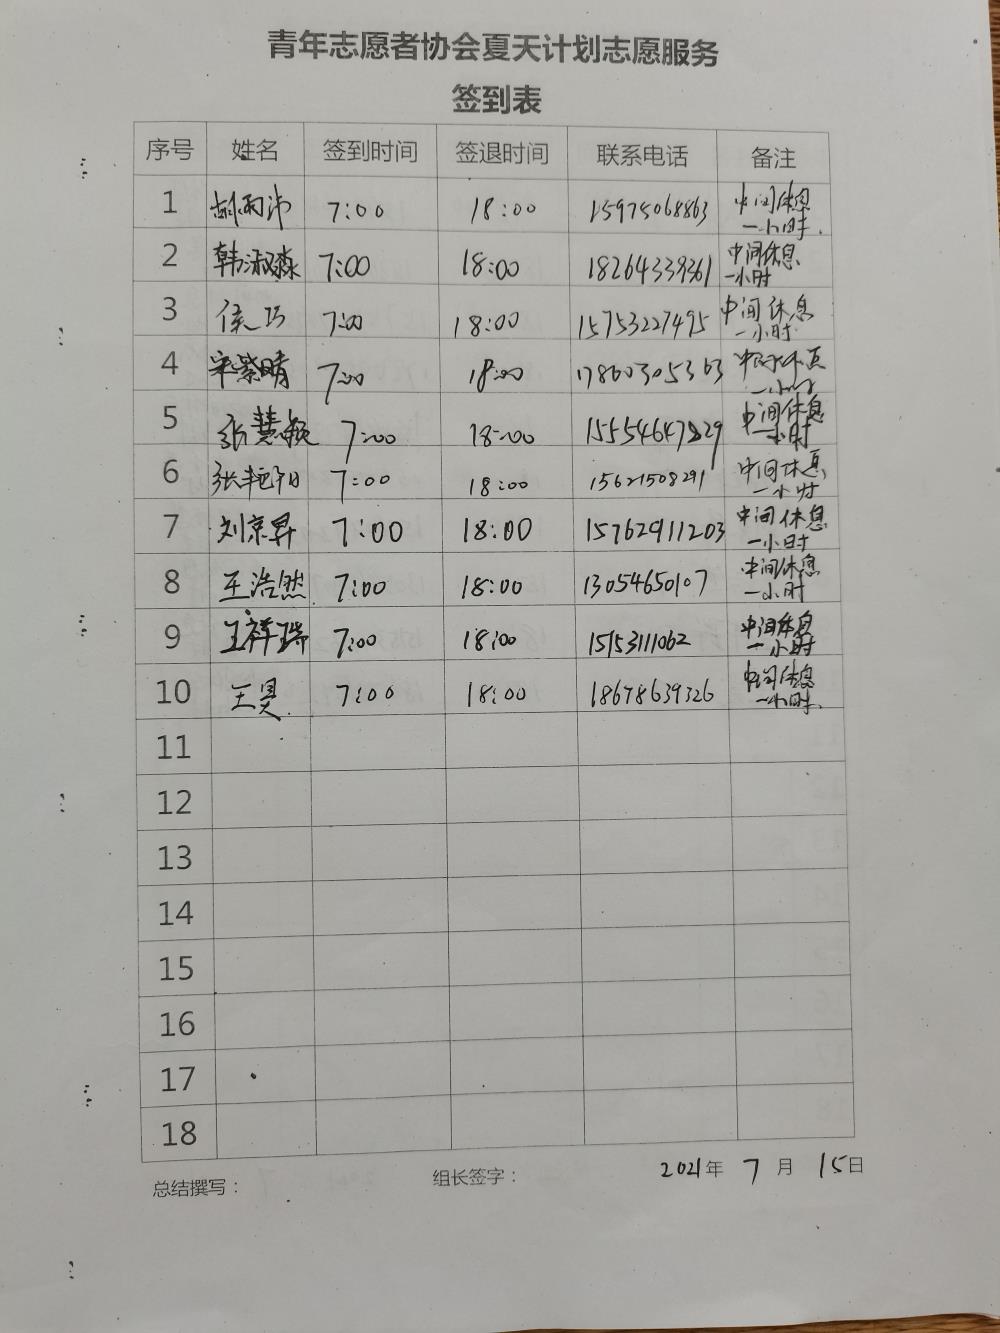 青年志愿者协会夏天计划志愿服务
签到表
序号 姓名 签到时间 签退时间 联系电话 备注
1 胡雨沛 7:00 18:00 15975068863 中间休息一小时.
2 韩淑淼 7:00 18:00 18264339361 中间休息一小时
3 侯巧 7:00 18:00 15753227495 中间休息一小时
4 宋紫晴 7:00 18:00 17860305363 中间休息一小时
5 张慧颖 7:00 18:00 15554647829 中间休息一小时
6 张艳阳 7:00 18:00 15621508291 中间休息一小时
7 刘京昇 7:00 18:00 15762911203 中间休息一小时
8 王浩然 7:00 18:00 13054650107 中间休息一小时
9 王祥瑞 7:00 18:00 15153111062 中间休息一小时
10 王昊 7:00 18:00 18678639326 中间休息一小时.
11
12
13
14
15
16
17
18
总结撰写： 组长签字： 2021年 7月 15日